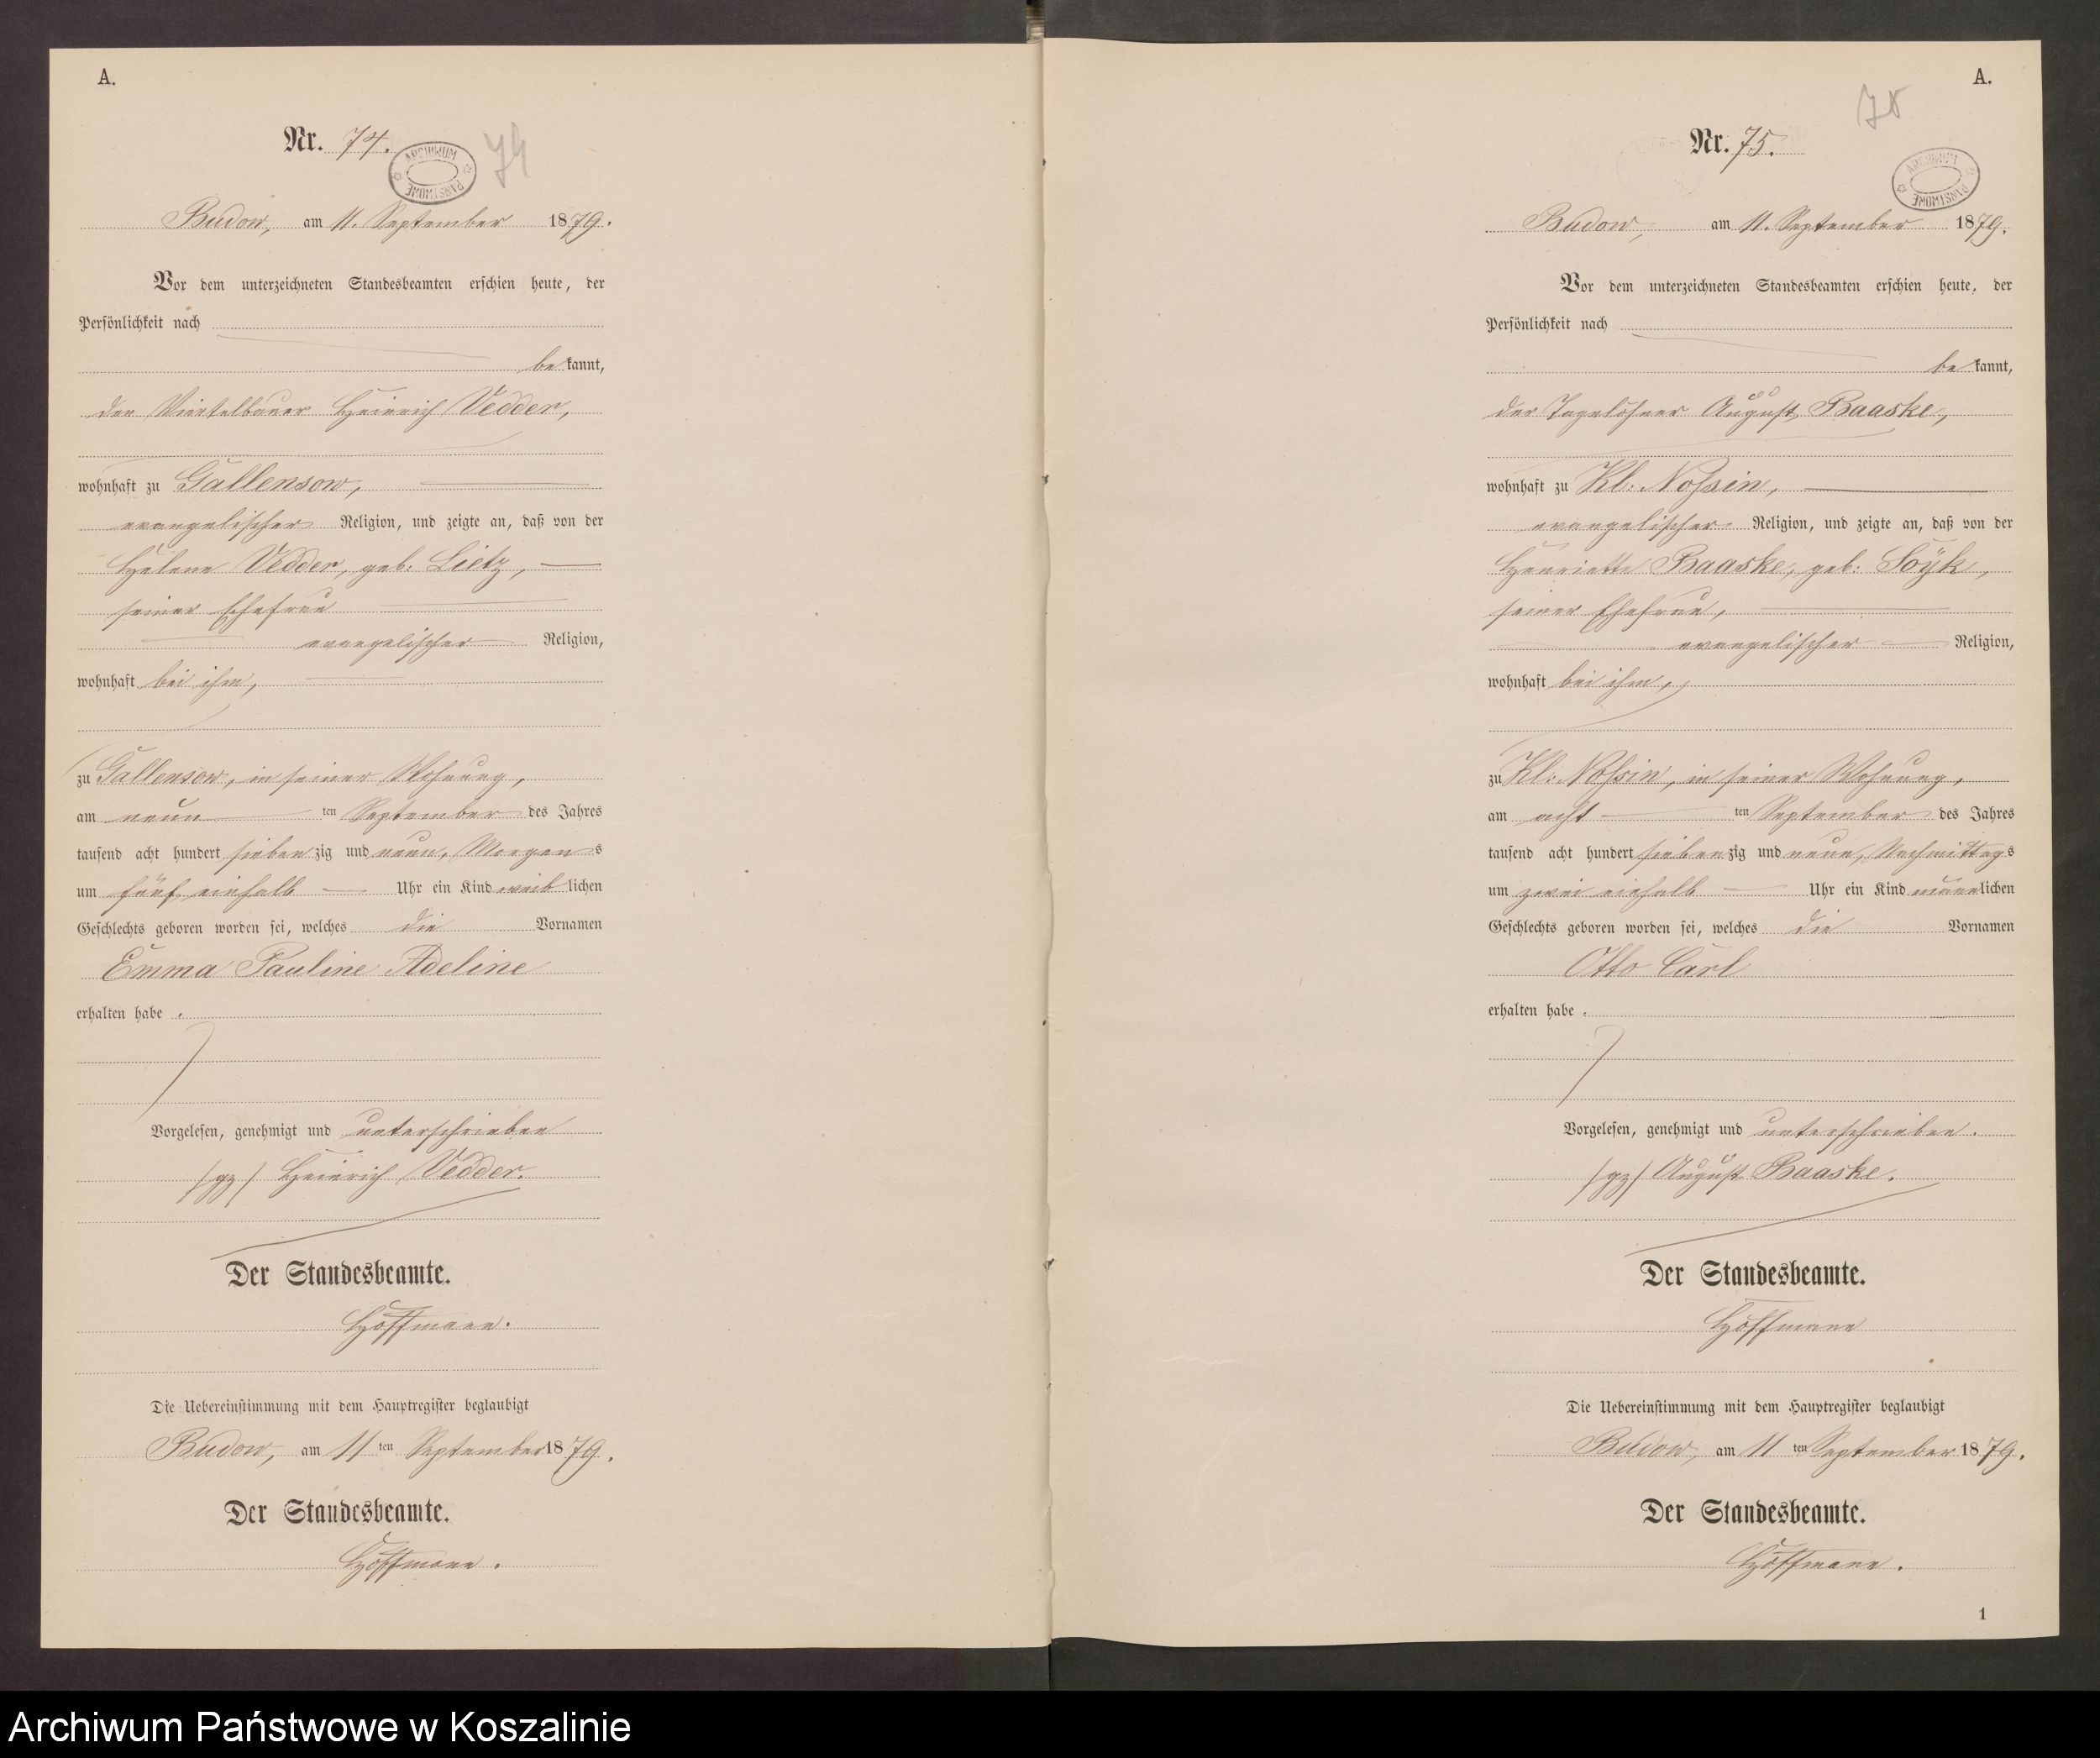 A.
Nr. 74.
74
ARCHIWUM PAŃSTWOWE
Budow, am 11. September 1879.
Vor dem unterzeichneten Standesbeamten erschien heute, der
Persönlichkeit nach
bekannt,
der Viertelbauer Heinrich Vedder,
wohnhaft zu Gallensow,
evangelischer Religion, und zeigte an, daß von der
Helene Vedder, geb. Lietz,
seiner Ehefrau
evangelischer Religion,
wohnhaft bei ihm,
zu Gallensow, in seiner Wohnung,
am neun ten September des Jahres
tausend acht hundert siebenzig und neun, Morgens
um fünf einhalb Uhr ein Kind weiblichen
Geschlechts geboren worden sei, welches die Vornamen
Emma Pauline Adeline
erhalten habe.
Vorgelesen, genehmigt und unterschrieben
/gz/ Heinrich Vedder.
Der Standesbeamte.
Hoffmann.
Die Uebereinstimmung mit dem Hauptregister beglaubigt
Budow, am 11ten September 1879.
Der Standesbeamte.
Hoffmann.
A.
75
Nr. 75.
ARCHIWUM PAŃSTWOWE
Budow, am 11. September 1879.
Vor dem unterzeichneten Standesbeamten erschien heute, der
Persönlichkeit nach
bekannt,
der Tagelöhner August Baaske,
wohnhaft zu Kl. Nossin,
evangelischer Religion, und zeigte an, daß von der
Henriette Baaske, geb. Soÿk,
seiner Ehefrau,
evangelischer Religion,
wohnhaft bei ihm,
zu Kl. Nossin, in seiner Wohnung,
am acht ten September des Jahres
tausend acht hundert siebenzig und neun, Nachmittags
um zwei einhalb Uhr ein Kind männlichen
Geschlechts geboren worden sei, welches die Vornamen
Otto Carl
erhalten habe.
Vorgelesen, genehmigt und unterschrieben.
/gz/ August Baaske.
Der Standesbeamte.
Hoffmann
Die Uebereinstimmung mit dem Hauptregister beglaubigt
Budow, am 11ten September 1879.
Der Standesbeamte.
Hoffmann.
1
Archiwum Państwowe w Koszalinie